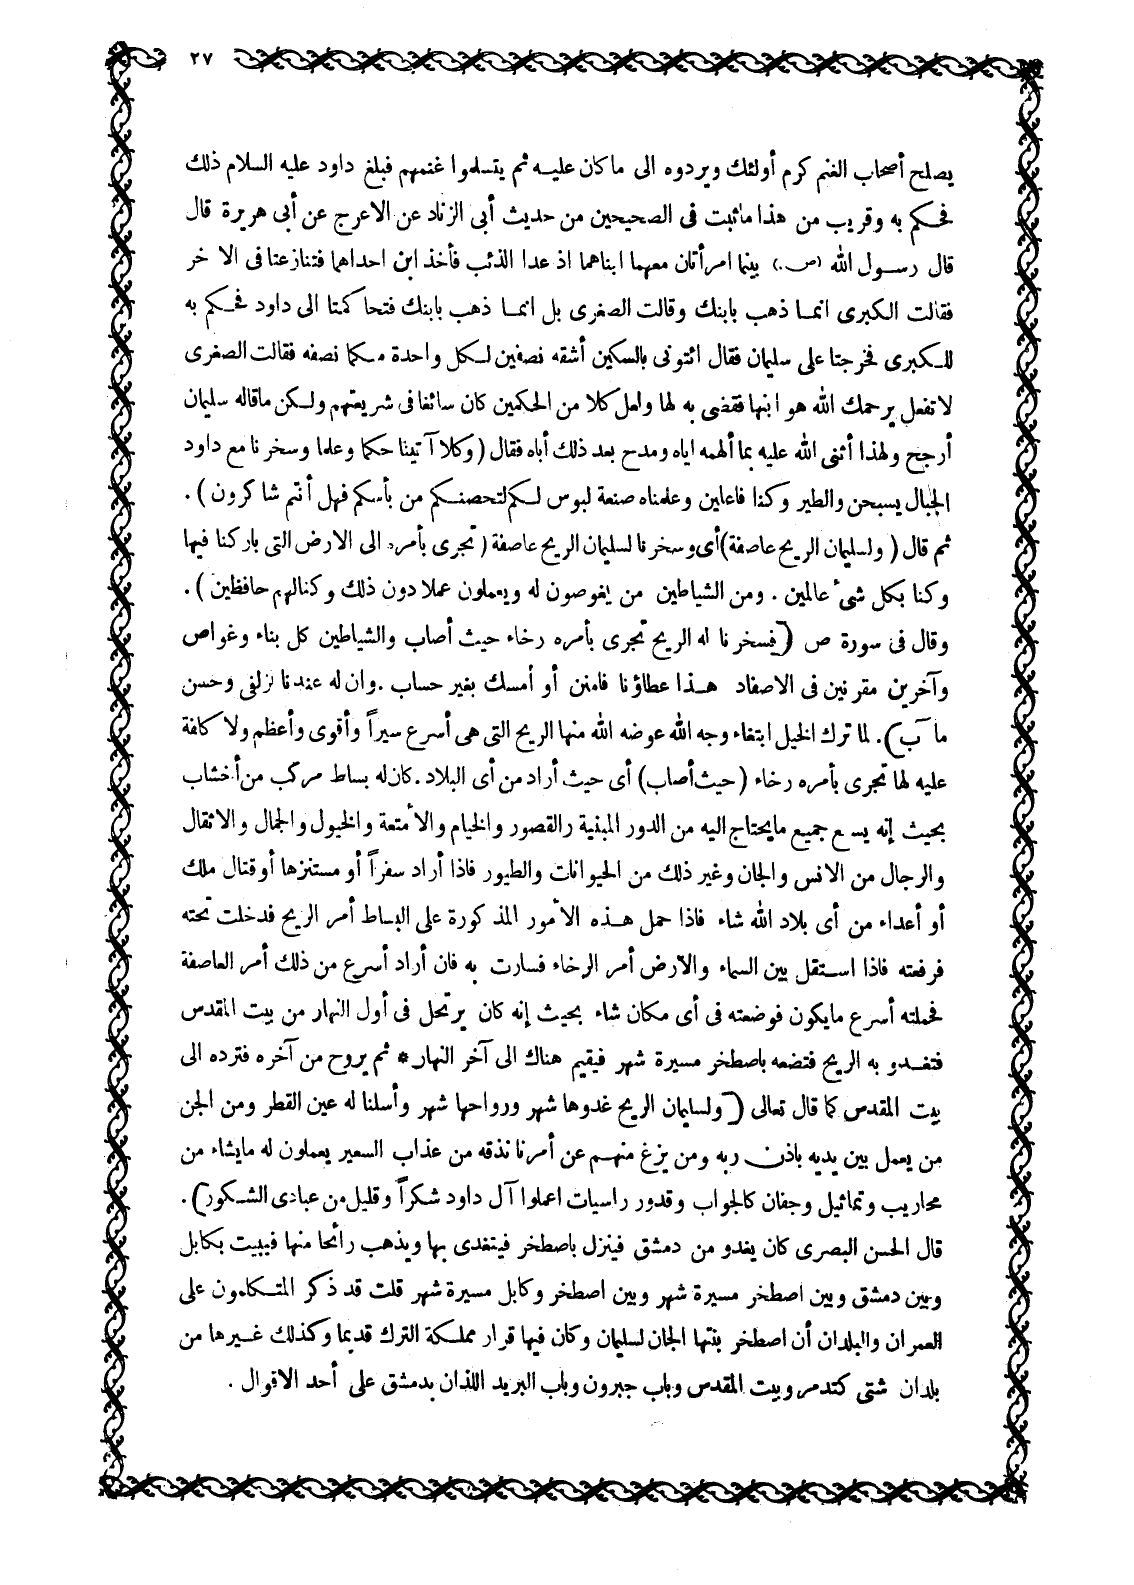 ٢٧
يصلح أصحاب الغنم كرم أولئك ويردوه الى ما كان عليه ثم يتسلموا غنمهم فبلغ داود عليه السلام ذلك
فحكم به وقريب من هذا ماثبت فى الصحيحين من حديث أبى الزناد عن الاعرج عن أبى هريرة قال
قال رسول الله (ص.) بينما امرأتان معهما ابناهما اذ عدا الذئب فأخذ ابن احداهما فتنازعتا فى الاخر
فقالت الكبرى انما ذهب بابنك وقالت الصغرى بل انما ذهب بابنك فتحاكمتا الى داود فحكم به
للكبرى فخرجتا على سليمان فقال ائتونى بالسكين أشقه نصفين لكل واحدة منكما نصفه فقالت الصغرى
لاتفعل يرحمك الله هو ابنها فقضى به لها ولعل كلا من الحكمين كان سائغا فى شريعتهم ولكن ماقاله سليمان
أرجح ولهذا أثنى الله عليه بما ألهمه اياه ومدح بعد ذلك أباه فقال (وكلا آتينا حكما وعلما وسخرنا مع داود
الجبال يسبحن والطير وكنا فاعلين وعلمناه صنعة لبوس لكم لتحصنكم من بأسكم فهل أنتم شاكرون).
ثم قال (ولسليمان الريح عاصفة) أى وسخرنا لسليمان الريح عاصفة (تجرى بأمره الى الارض التى باركنا فيها
وكنا بكل شئ عالمين . ومن الشياطين من يغوصون له ويعملون عملا دون ذلك وكنا لهم حافظين).
وقال فى سورة ص (فسخرنا له الريح تجرى بأمره رخاء حيث أصاب والشياطين كل بناء وغواص
وآخرين مقرنين فى الاصفاد هذا عطاؤنا فامنن أو أمسك بغير حساب . وان له عندنا لزلفى وحسن
مآب). لما ترك الخيل ابتغاء وجه الله عوضه الله منها الريح التى هى أسرع سيراً وأقوى وأعظم ولا كلفة
عليه لها تجرى بأمره رخاء (حيث أصاب) أى حيث أراد من أى البلاد . كان له بساط مركب من أخشاب
بحيث إنه يسع جميع مايحتاج اليه من الدور المبنية والقصور والخيام والأمتعة والخيول والجمال والاثقال
والرجال من الانس والجان وغير ذلك من الحيوانات والطيور فاذا أراد سفراً أو مستنزها أو قتال ملك
أو أعداء من أى بلاد الله شاء فاذا حمل هذه الأمور المذكورة على البساط أمر الريح فدخلت تحته
فرفعته فاذا استقل بين السماء والارض أمر الرخاء فسارت به فان أراد أسرع من ذلك أمر العاصفة
فحملته أسرع مايكون فوضعته فى أى مكان شاء بحيث إنه كان يرتحل فى أول النهار من بيت المقدس
فتغدو به الريح فتضعه باصطخر مسيرة شهر فيقيم هناك الى آخر النهار* ثم يروح من آخره فترده الى
بيت المقدس كما قال تعالى (ولسليمان الريح غدوها شهر ورواحها شهر وأسلنا له عين القطر ومن الجن
من يعمل بين يديه باذن ربه ومن يزغ منهم عن أمرنا نذقه من عذاب السعير يعملون له مايشاء من
محاريب وتماثيل وجفان كالجواب وقدور راسيات اعملوا آل داود شكراً وقليل من عبادى الشكور).
قال الحسن البصرى كان يغدو من دمشق فينزل باصطخر فيتغدى بها ويذهب رائحا منها فيبيت بكابل
وبين دمشق وبين اصطخر مسيرة شهر وبين اصطخر وكابل مسيرة شهر قلت قد ذكر المتكلمون على
العمران والبلدان أن اصطخر بنتها الجان لسليمان وكان فيها قرار مملكة الترك قديما وكذلك غيرها من
بلدان شتى كتدمر وبيت المقدس وباب جبرون وباب البريد اللذان بدمشق على أحد الاقوال .